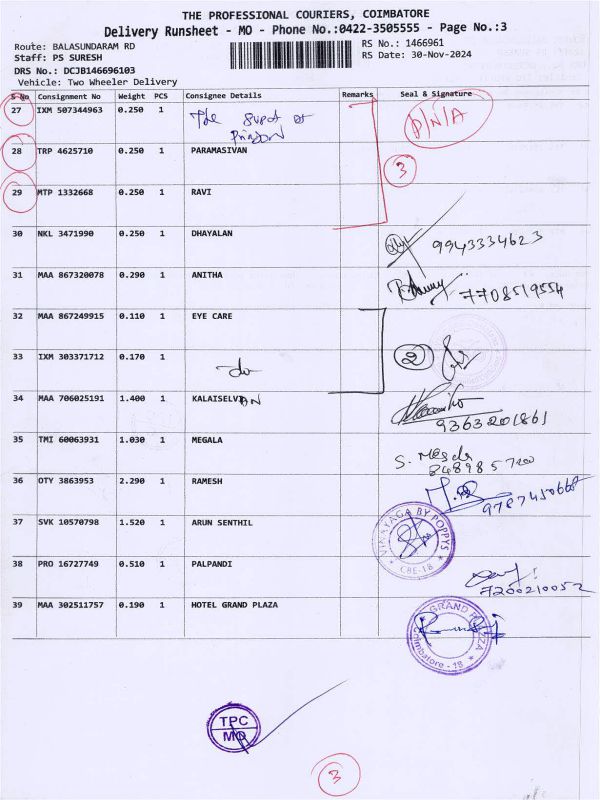 THE PROFESSIONAL COURIERS, COIMBATORE
Delivery Runsheet - MO - Phone No.:0422-3505555 - Page No.:3
Route: BALASUNDARAM RD
RS No.: 1466961
Staff: PS SURESH
RS Date: 30-Nov-2024
DRS No.: DCJB146696103
Vehicle: Two Wheeler Delivery
S No Consignment No Weight PCS Consignee Details Remarks Seal & Signature
27 IXM 507344963 0.250 1 The Supdt of D/N/A
Prison
28 TRP 4625710 0.250 1 PARAMASIVAN 3
29 MTP 1332668 0.250 1 RAVI
30 NKL 3471990 0.250 1 DHAYALAN 9943334623
31 MAA 867320078 0.290 1 ANITHA 7708519554
32 MAA 867249915 0.110 1 EYE CARE
33 IXM 303371712 0.170 1 do 2
34 MAA 706025191 1.400 1 KALAISELVAN 9363201861
35 TMI 60063931 1.030 1 MEGALA S. Megala
8489857200
36 OTY 3863953 2.290 1 RAMESH 9787450668
37 SVK 10570798 1.520 1 ARUN SENTHIL VINAYAGA BY POPPYS CBE-18
38 PRO 16727749 0.510 1 PALPANDI 7200210052
39 MAA 302511757 0.190 1 HOTEL GRAND PLAZA GRAND PLAZZA Coimbatore - 18
TPC
MO
3